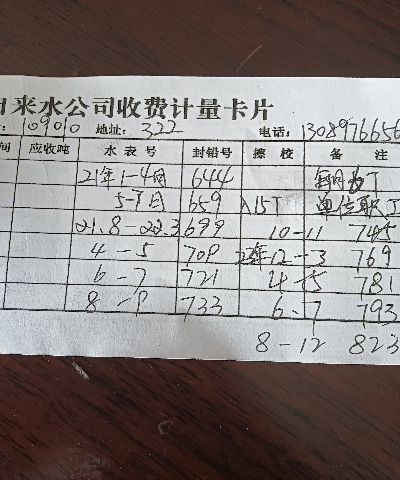 来水公司收费计量卡片
109010 地址: 322 电话: 1308976656
间 应收吨 水表号 封铅号 擦校 备注
21年1-4月 644
5-7月 659 入15T 单位职工
21.8-22.3 699 10-11 745
4-5 709 22年12-3 769
6-7 721 4-5 781
8-9 733 6-7 793
8-12 823